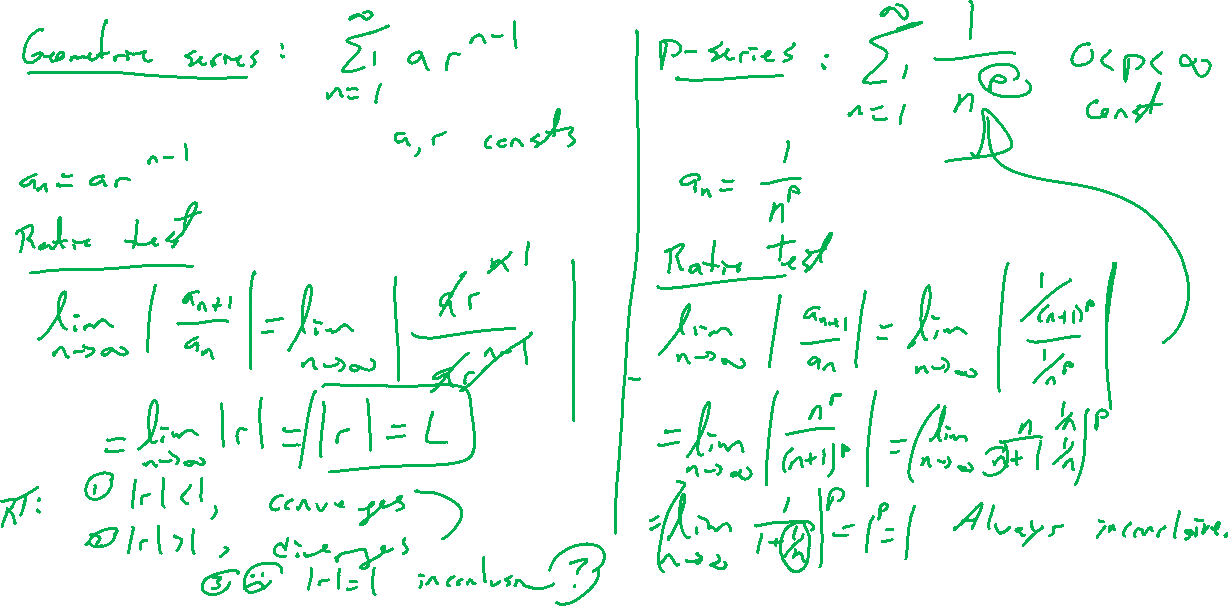 Geometric series: ∑_{n=1}^{∞} a r^{n-1}
a, r consts
a_n = a r^{n-1}
Ratio test
lim_{n→∞} | a_{n+1} / a_n | = lim_{n→∞} | a r^{n} / a r^{n-1} |
= lim_{n→∞} |r| = |r| = L
RT: ① |r|<1, converges
② |r|>1, diverges
③ |r|=1 inconclusive ?
P-series: ∑_{n=1}^{∞} 1 / n^p 0<p<∞
const
a_n = 1 / n^p
Ratio test
lim_{n→∞} | a_{n+1} / a_n | = lim_{n→∞} | (1/(n+1)^p) / (1/n^p) |
= lim_{n→∞} | n^p / (n+1)^p | = ( lim_{n→∞} n / (n+1) (1/n) / (1/n) )^p
= ( lim_{n→∞} 1 / (1+1/n) )^p = 1^p = 1 Always inconclusive.